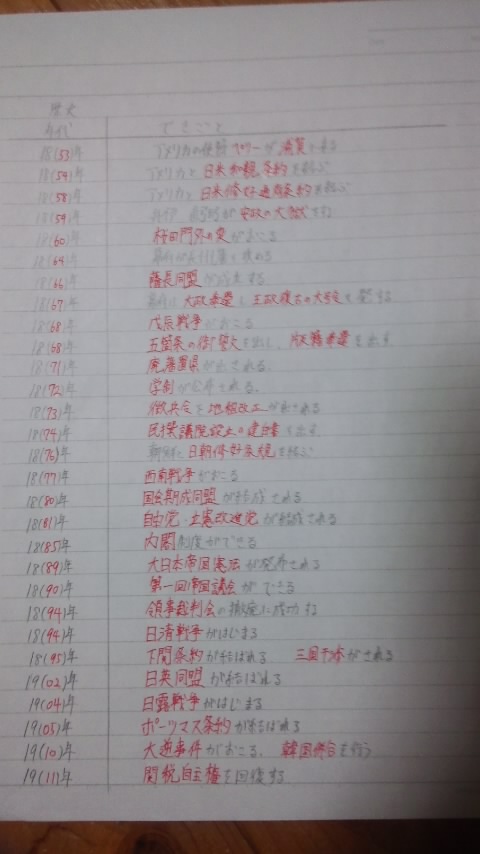 歴史
年代 できごと
18(53)年 アメリカの使節ペリーが浦賀に来る
18(54)年 アメリカと日米和親条約を結ぶ
18(58)年 アメリカと日米修好通商条約を結ぶ
18(59)年 井伊直弼が安政の大獄をする
18(60)年 桜田門外の変がおこる
18(64)年 幕府が長州藩を攻める
18(66)年 薩長同盟が成立する
18(67)年 幕府に大政奉還と王政復古の大号令を発する
18(68)年 戊辰戦争がおこる
18(68)年 五箇条の御誓文を出し、版籍奉還を出す
18(71)年 廃藩置県が出される。
18(72)年 学制が公布される。
18(73)年 徴兵令と地租改正が出される
18(74)年 民撰議院設立の建白書を出す
18(76)年 朝鮮と日朝修好条規を結ぶ
18(77)年 西南戦争がおこる
18(80)年 国会期成同盟が結成される
18(81)年 自由党・立憲改進党が結成される
18(85)年 内閣制度ができる
18(89)年 大日本帝国憲法が発布される
18(90)年 第一回帝国議会ができる
18(94)年 領事裁判会の撤廃に成功する
18(94)年 日清戦争がはじまる
18(95)年 下関条約が結ばれる 三国干渉がされる
19(02)年 日英同盟が結ばれる
19(04)年 日露戦争がはじまる
19(05)年 ポーツマス条約が結ばれる
19(10)年 大逆事件がおこる、韓国併合を行う
19(11)年 関税自主権を回復する